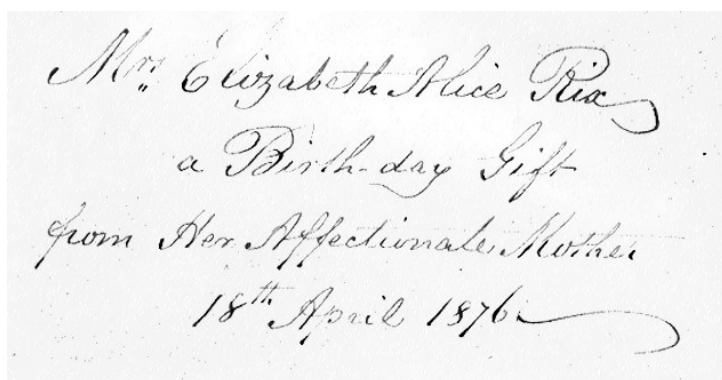 Mrs Elizabeth Alice Rix
a Birth-day Gift
from Her Affectionate Mother
18th April 1876